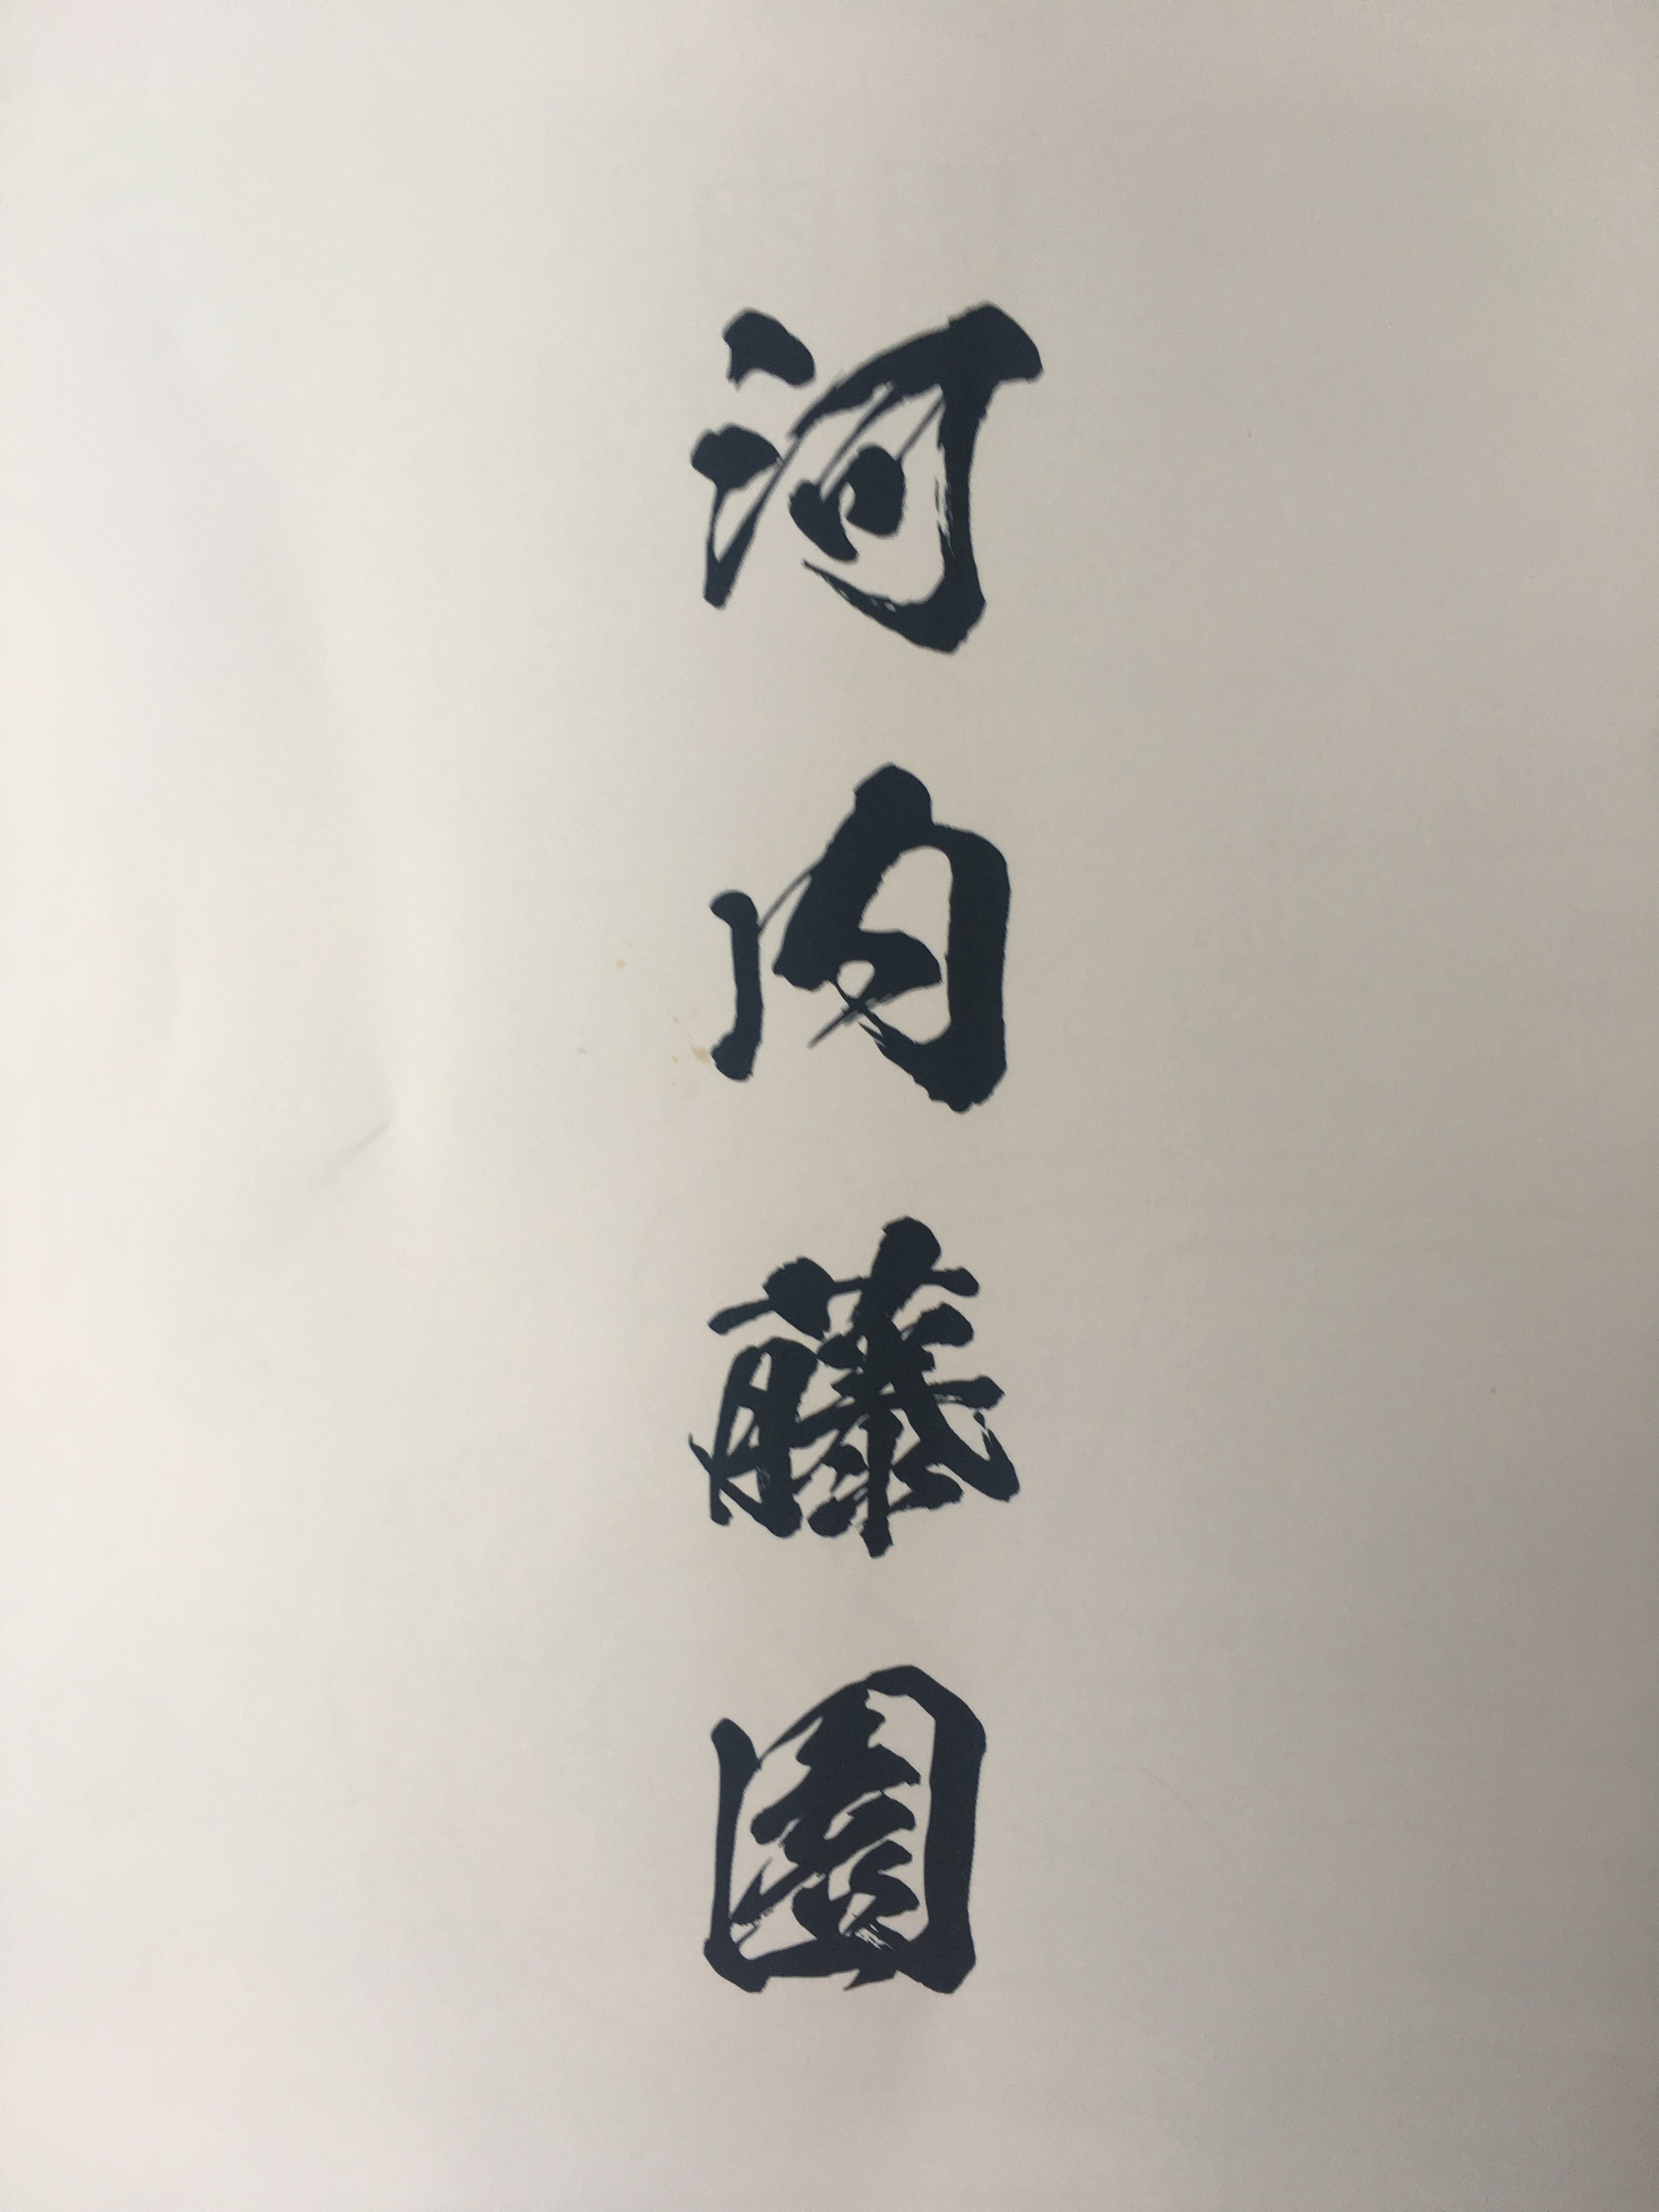 河内藤園